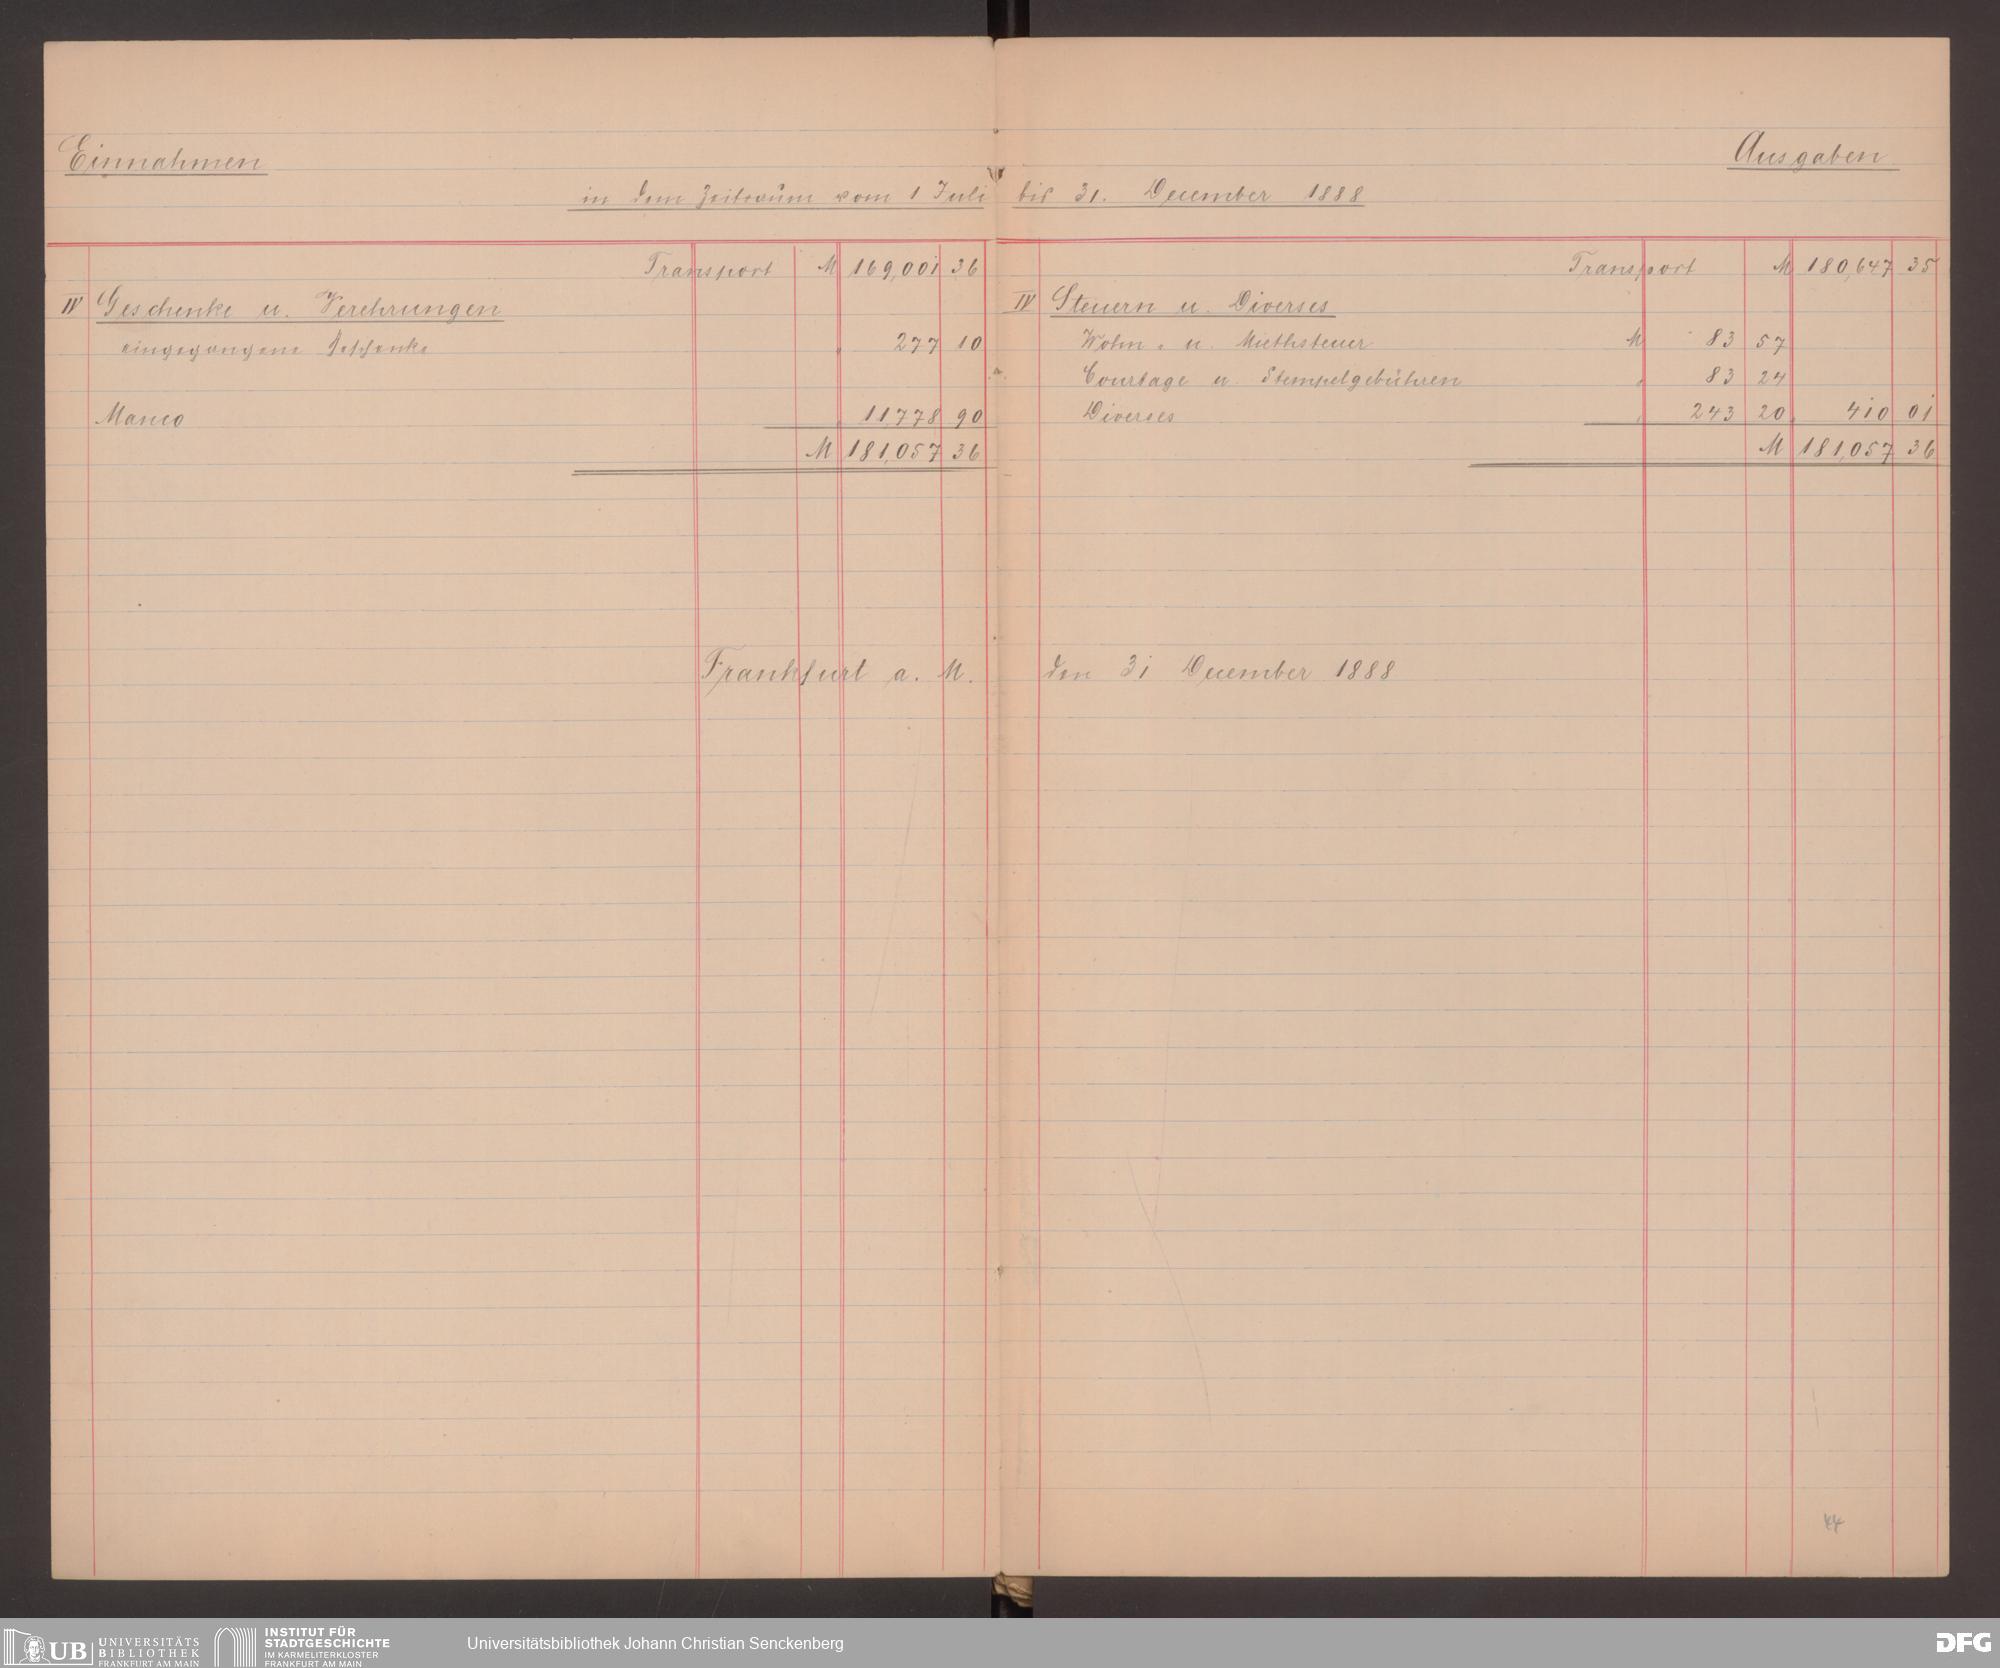 Einnahmen
Ausgaben
in dem Zeitraum vom 1 Juli bis 31. December 1888
Transport M 169,001 36
IV Geschenke u. Verehrungen
eingegangene Geschenke " 277 10
Manco " 11,778 90
M 181,057 36
Transport M 180,647 35
IV Steuern u. Diverses
Wohn- u. Miethsteuer M 83 57
Courtage u. Stempelgebühren " 83 24
Diverses " 243 20 " 410 01
M 181,057 36
Frankfurt a. M. den 31 December 1888
UB UNIVERSITÄTS
BIBLIOTHEK
FRANKFURT AM MAIN
INSTITUT FÜR
STADTGESCHICHTE
IM KARMELITERKLOSTER
FRANKFURT AM MAIN
Universitätsbibliothek Johann Christian Senckenberg
DFG